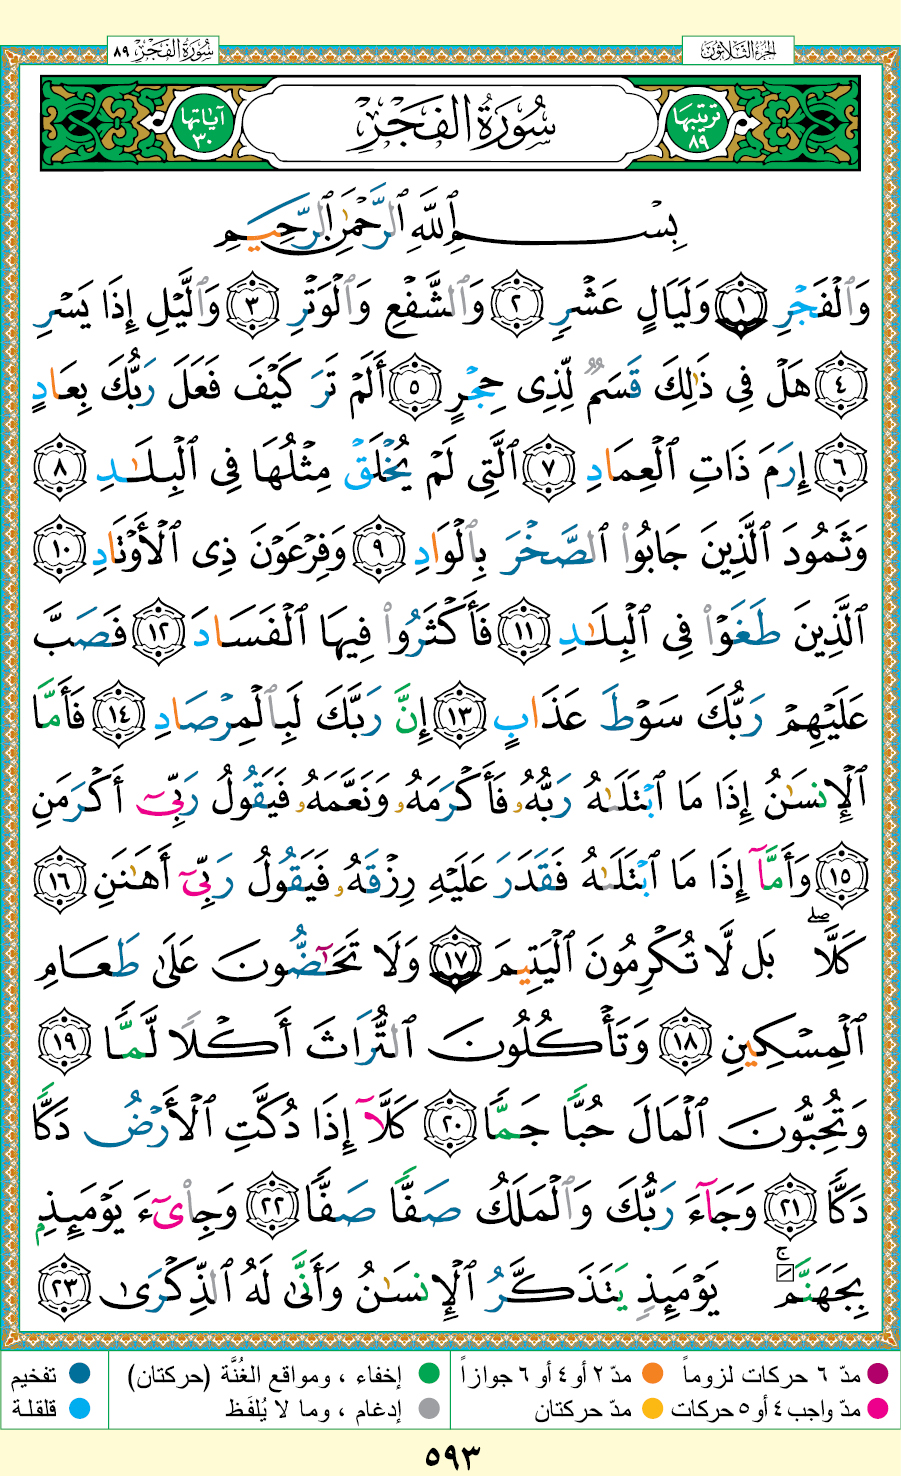 سُورَةُ الفَجْرِ ٨٩
الجُزءُ الثَّلَاثُونَ
ترتيبها ٨٩
سُورَةُ الفَجْرِ
آياتها ٣٠
بِسْمِ ٱللَّهِ ٱلرَّحْمَٰنِ ٱلرَّحِيمِ
وَٱلْفَجْرِ ١ وَلَيَالٍ عَشْرٍ ٢ وَٱلشَّفْعِ وَٱلْوَتْرِ ٣ وَٱلَّيْلِ إِذَا يَسْرِ
٤ هَلْ فِى ذَٰلِكَ قَسَمٌ لِّذِى حِجْرٍ ٥ أَلَمْ تَرَ كَيْفَ فَعَلَ رَبُّكَ بِعَادٍ
٦ إِرَمَ ذَاتِ ٱلْعِمَادِ ٧ ٱلَّتِى لَمْ يُخْلَقْ مِثْلُهَا فِى ٱلْبِلَٰدِ ٨
وَثَمُودَ ٱلَّذِينَ جَابُوا۟ ٱلصَّخْرَ بِٱلْوَادِ ٩ وَفِرْعَوْنَ ذِى ٱلْأَوْتَادِ ١٠
ٱلَّذِينَ طَغَوْا۟ فِى ٱلْبِلَٰدِ ١١ فَأَكْثَرُوا۟ فِيهَا ٱلْفَسَادَ ١٢ فَصَبَّ
عَلَيْهِمْ رَبُّكَ سَوْطَ عَذَابٍ ١٣ إِنَّ رَبَّكَ لَبِٱلْمِرْصَادِ ١٤ فَأَمَّا
ٱلْإِنسَٰنُ إِذَا مَا ٱبْتَلَىٰهُ رَبُّهُۥ فَأَكْرَمَهُۥ وَنَعَّمَهُۥ فَيَقُولُ رَبِّىٓ أَكْرَمَنِ
١٥ وَأَمَّآ إِذَا مَا ٱبْتَلَىٰهُ فَقَدَرَ عَلَيْهِ رِزْقَهُۥ فَيَقُولُ رَبِّىٓ أَهَٰنَنِ ١٦
كَلَّا ۖ بَل لَّا تُكْرِمُونَ ٱلْيَتِيمَ ١٧ وَلَا تَحَٰٓضُّونَ عَلَىٰ طَعَامِ
ٱلْمِسْكِينِ ١٨ وَتَأْكُلُونَ ٱلتُّرَاثَ أَكْلًا لَّمًّا ١٩
وَتُحِبُّونَ ٱلْمَالَ حُبًّا جَمًّا ٢٠ كَلَّآ إِذَا دُكَّتِ ٱلْأَرْضُ دَكًّا
دَكًّا ٢١ وَجَآءَ رَبُّكَ وَٱلْمَلَكُ صَفًّا صَفًّا ٢٢ وَجِا۟ىٓءَ يَوْمَئِذٍۭ
بِجَهَنَّمَ ۚ يَوْمَئِذٍ يَتَذَكَّرُ ٱلْإِنسَٰنُ وَأَنَّىٰ لَهُ ٱلذِّكْرَىٰ ٢٣
مدّ ٦ حركات لزوماً
مدّ ٢ أو ٤ أو ٦ جوازاً
إخفاء ، ومواقع الغُنَّة (حركتان)
تفخيم
مدّ واجب ٤ أو ٥ حركات
مدّ حركتان
إدغام ، وما لا يُلفَظ
قلقلة
٥٩٣